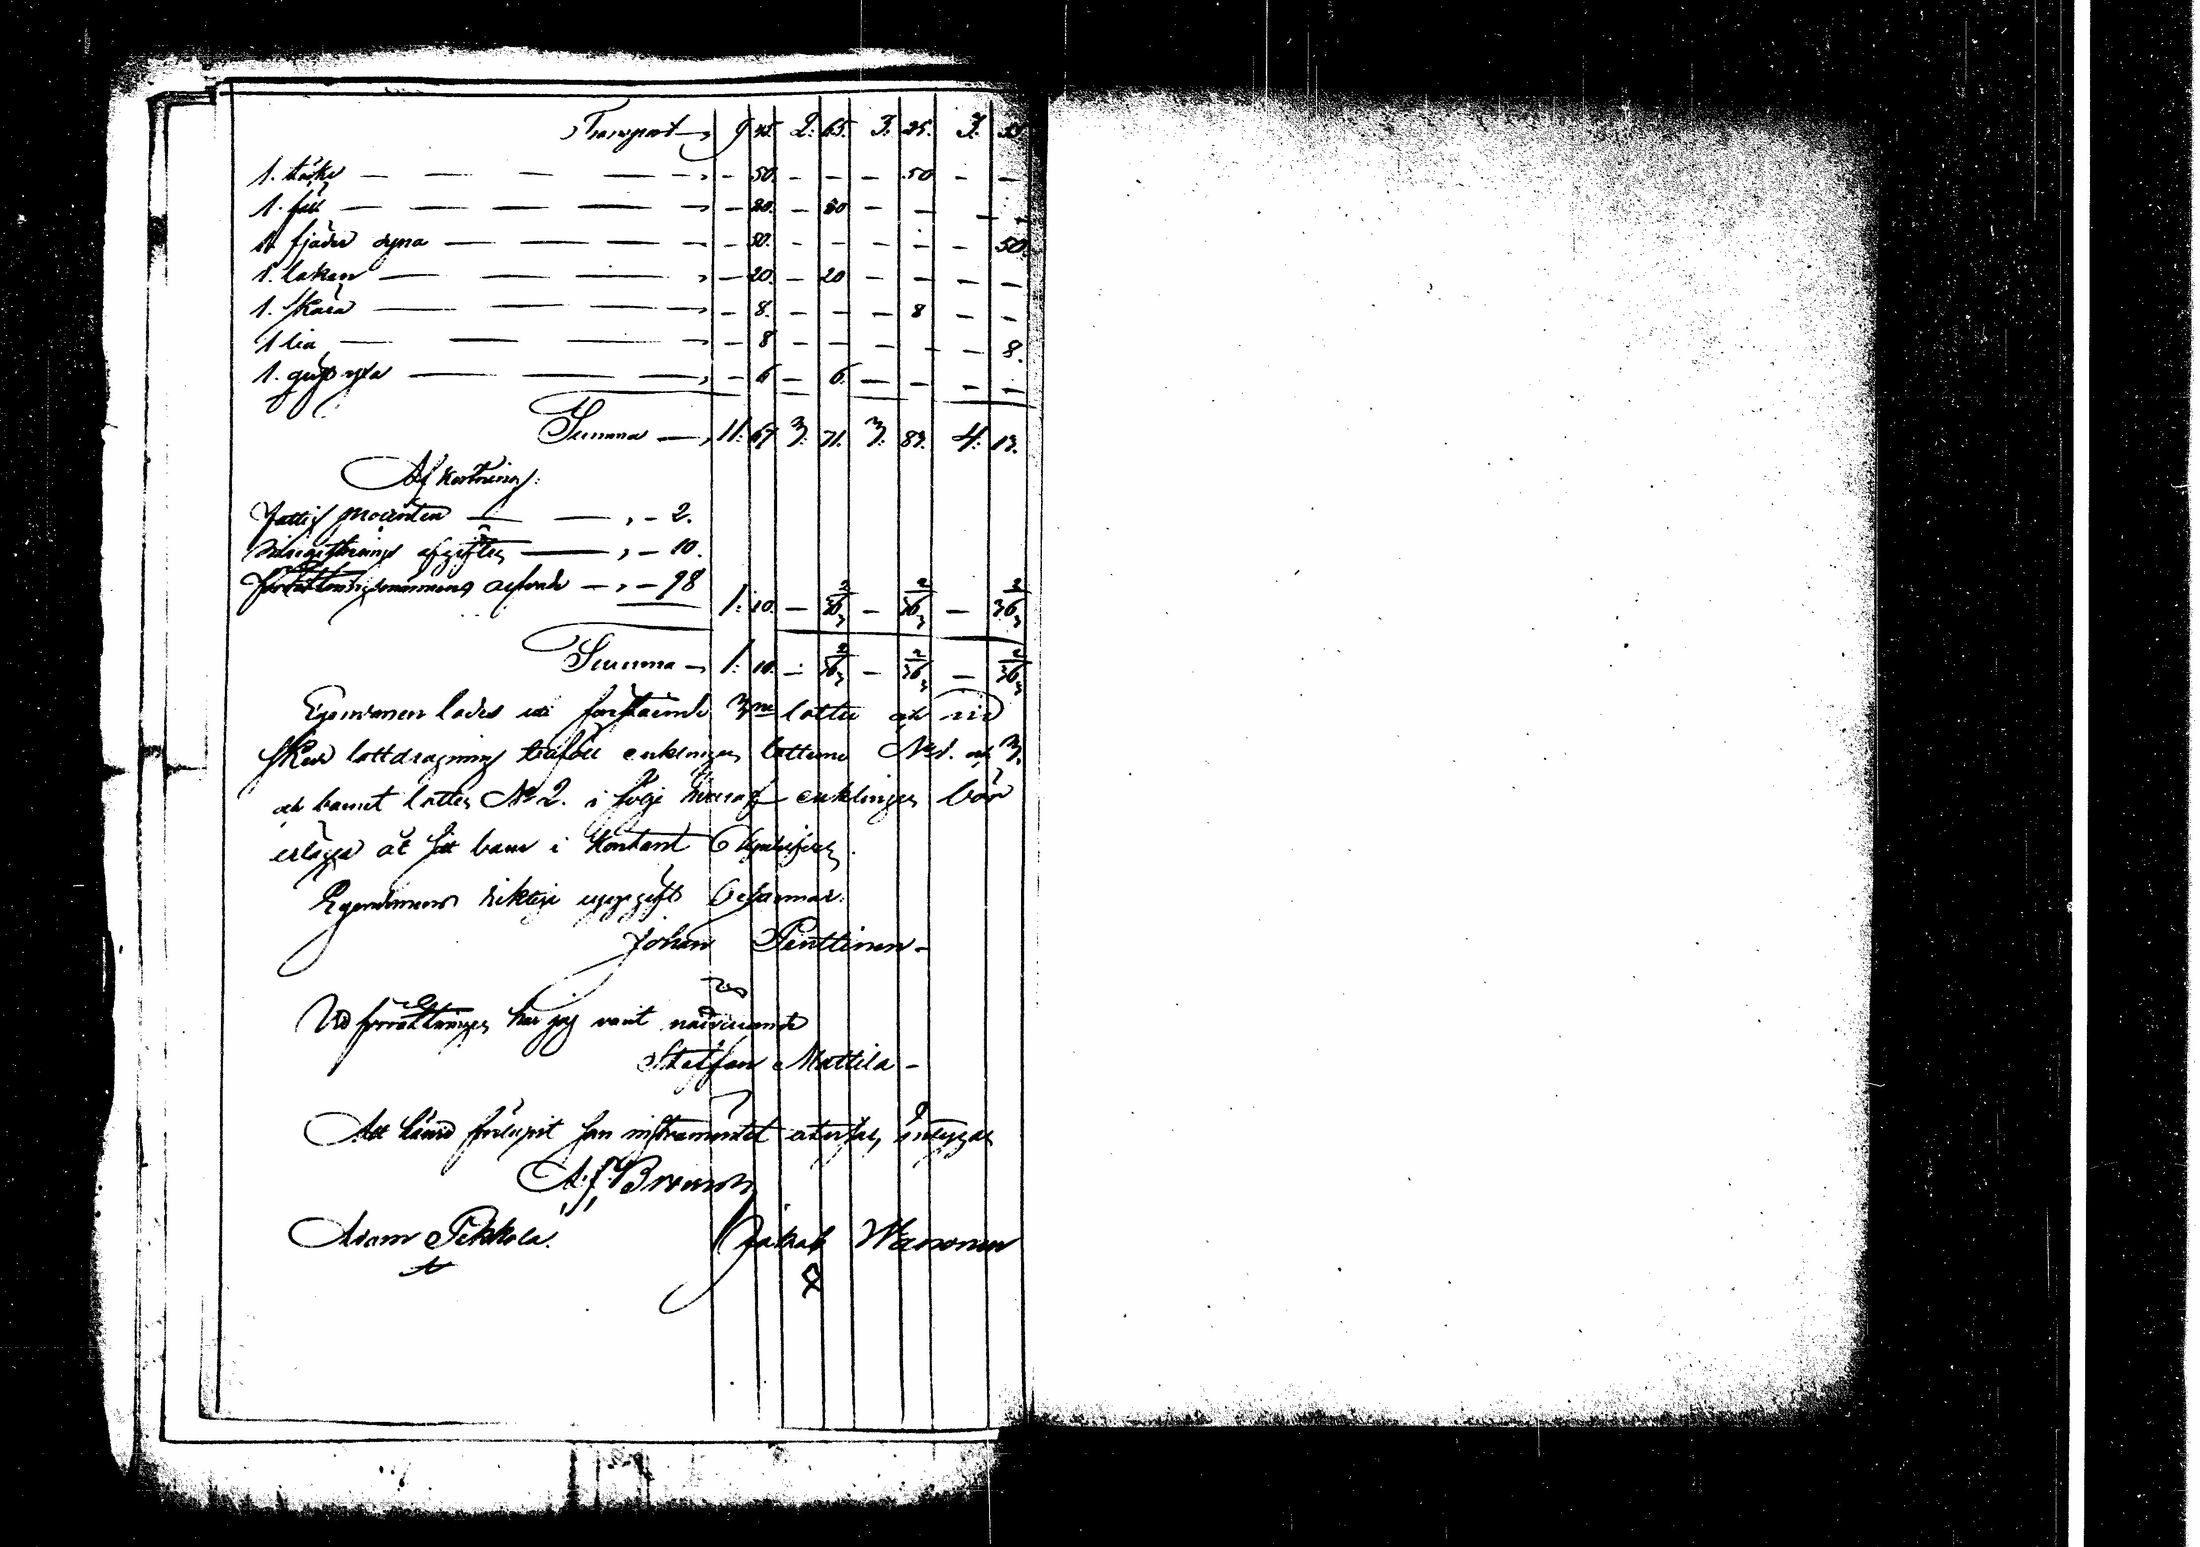 Transport — 9 45. 2. 65. 3. 25. 3. 55
1. täcke — — — — — — 50. — — — 50 — —
1. fäll — — — — — — 20. — 20 — — — —
1. fjäder dyna — — — — — 50. — — — — — 50.
1. lakan — — — — — 20. — 20 — — — —
1. skära — — — — — 8. — — — 8 — —
1 lia — — — — — 8 — — — — — 8.
1. — — — — 6 — 6. — — — —
Summa — 11. 67 3. 71. 3. 83. 4. 13.
Afkortning:
Fattig procenten — — „ — 2.
afgiften — „ — 10.
förrättningsmännens arfvode — „ — 98
1. 10. — 36 2/3 — 36 2/3 — 36 2/3
Summa — 1. 10. — 36 2/3 — 36 2/3 — 36 2/3
Egendomen lades uti förestående 3ne lotter och vid
sked lottdragning tillföll enklingen lotterne No 1. och 3.
och barnet lotten No 2. i följe hvaraf enklingen bör
erlägga åt sitt barn i kontant 6
Egendomens riktiga uppgift bejammar:
Johan Penttinen —
Vid förrättningen har jag varit närvarande
Staffan Mattila —
Att härvid förelupit som instrumentet utvisar, intygar
A. f. Brunou
Adam Pekkola. Jakob Wanonen